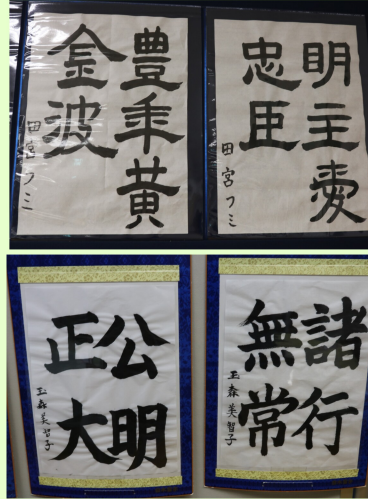 豊年黄
金波
田宮フミ
明主愛
忠臣
田宮フミ
公明
正大
玉森美智子
諸行
無常
玉森美智子